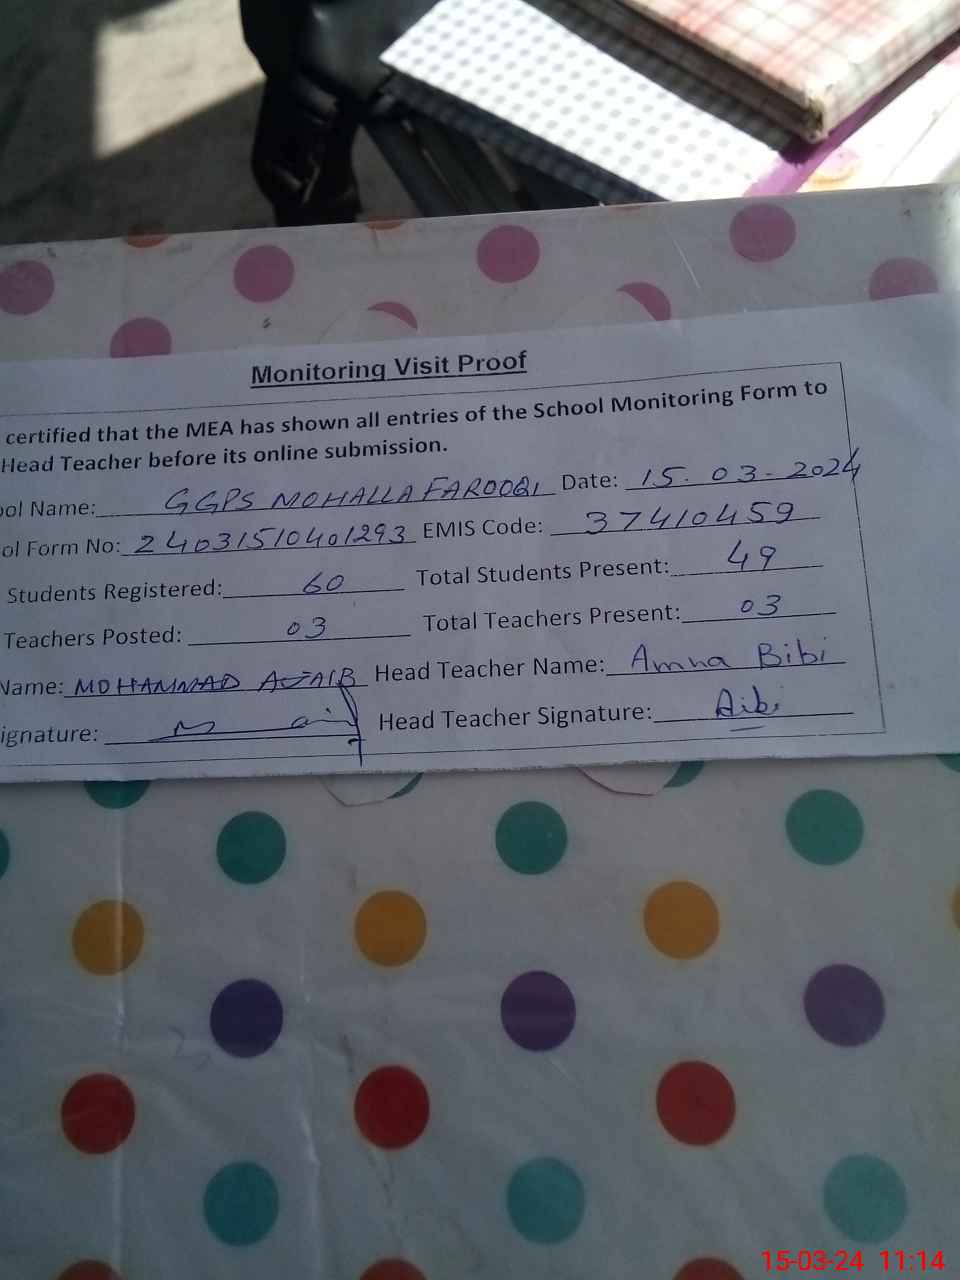 Monitoring Visit Proof
certified that the MEA has shown all entries of the School Monitoring Form to
Head Teacher before its online submission.
ool Name: GGPS MOHALLA FAROOQI Date: 15.03-2024
ol Form No: 24031510401293 EMIS Code: 37410459
Students Registered: 60 Total Students Present: 49
Teachers Posted: 03 Total Teachers Present: 03
Name: MOHAMMAD AJAIB Head Teacher Name: Amna Bibi
ignature: Head Teacher Signature: Bibi
15-03-24 11:14